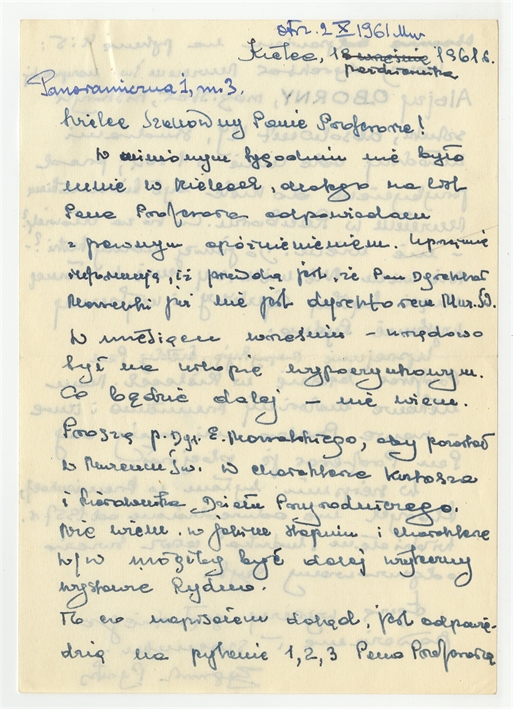 otrz. 2 X 1961 Mur
Kielce, 1 września 1961 r.
października
Panoramiczna 1, m 3.
Wielce Szanowny Panie Profesorze!
W minionym tygodniu nie było
mnie w Kielcach, dlatego na list
Pana Profesora odpowiadam
z pewnym opóźnieniem. Uprzejmie
informuję, iż prawdą jest, że Pan Dyrektor
już nie jest dyrektorem Muz. Św.
W miesiącu wrześniu – urzędowo
był na urlopie wypoczynkowym.
Co będzie dalej – nie wiem.
Proszę p. Dyr. E. Massalskiego, aby pozostał
w Muzeum Św. w charakterze Kustosza
i Kierownika Działu Przyrodniczego.
Nie wiem, w jakim stopniu i charakterze
w/w mógłby być dalej
wystawie Rydno.
To co napisałem dotąd, jest odpowie-
dzią na pytanie 1, 2, 3 Pana Profesora